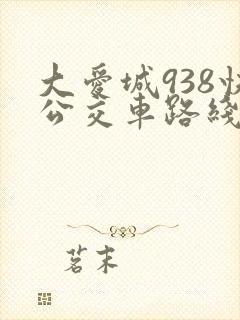 大愛城938
公交車路綫
茗末